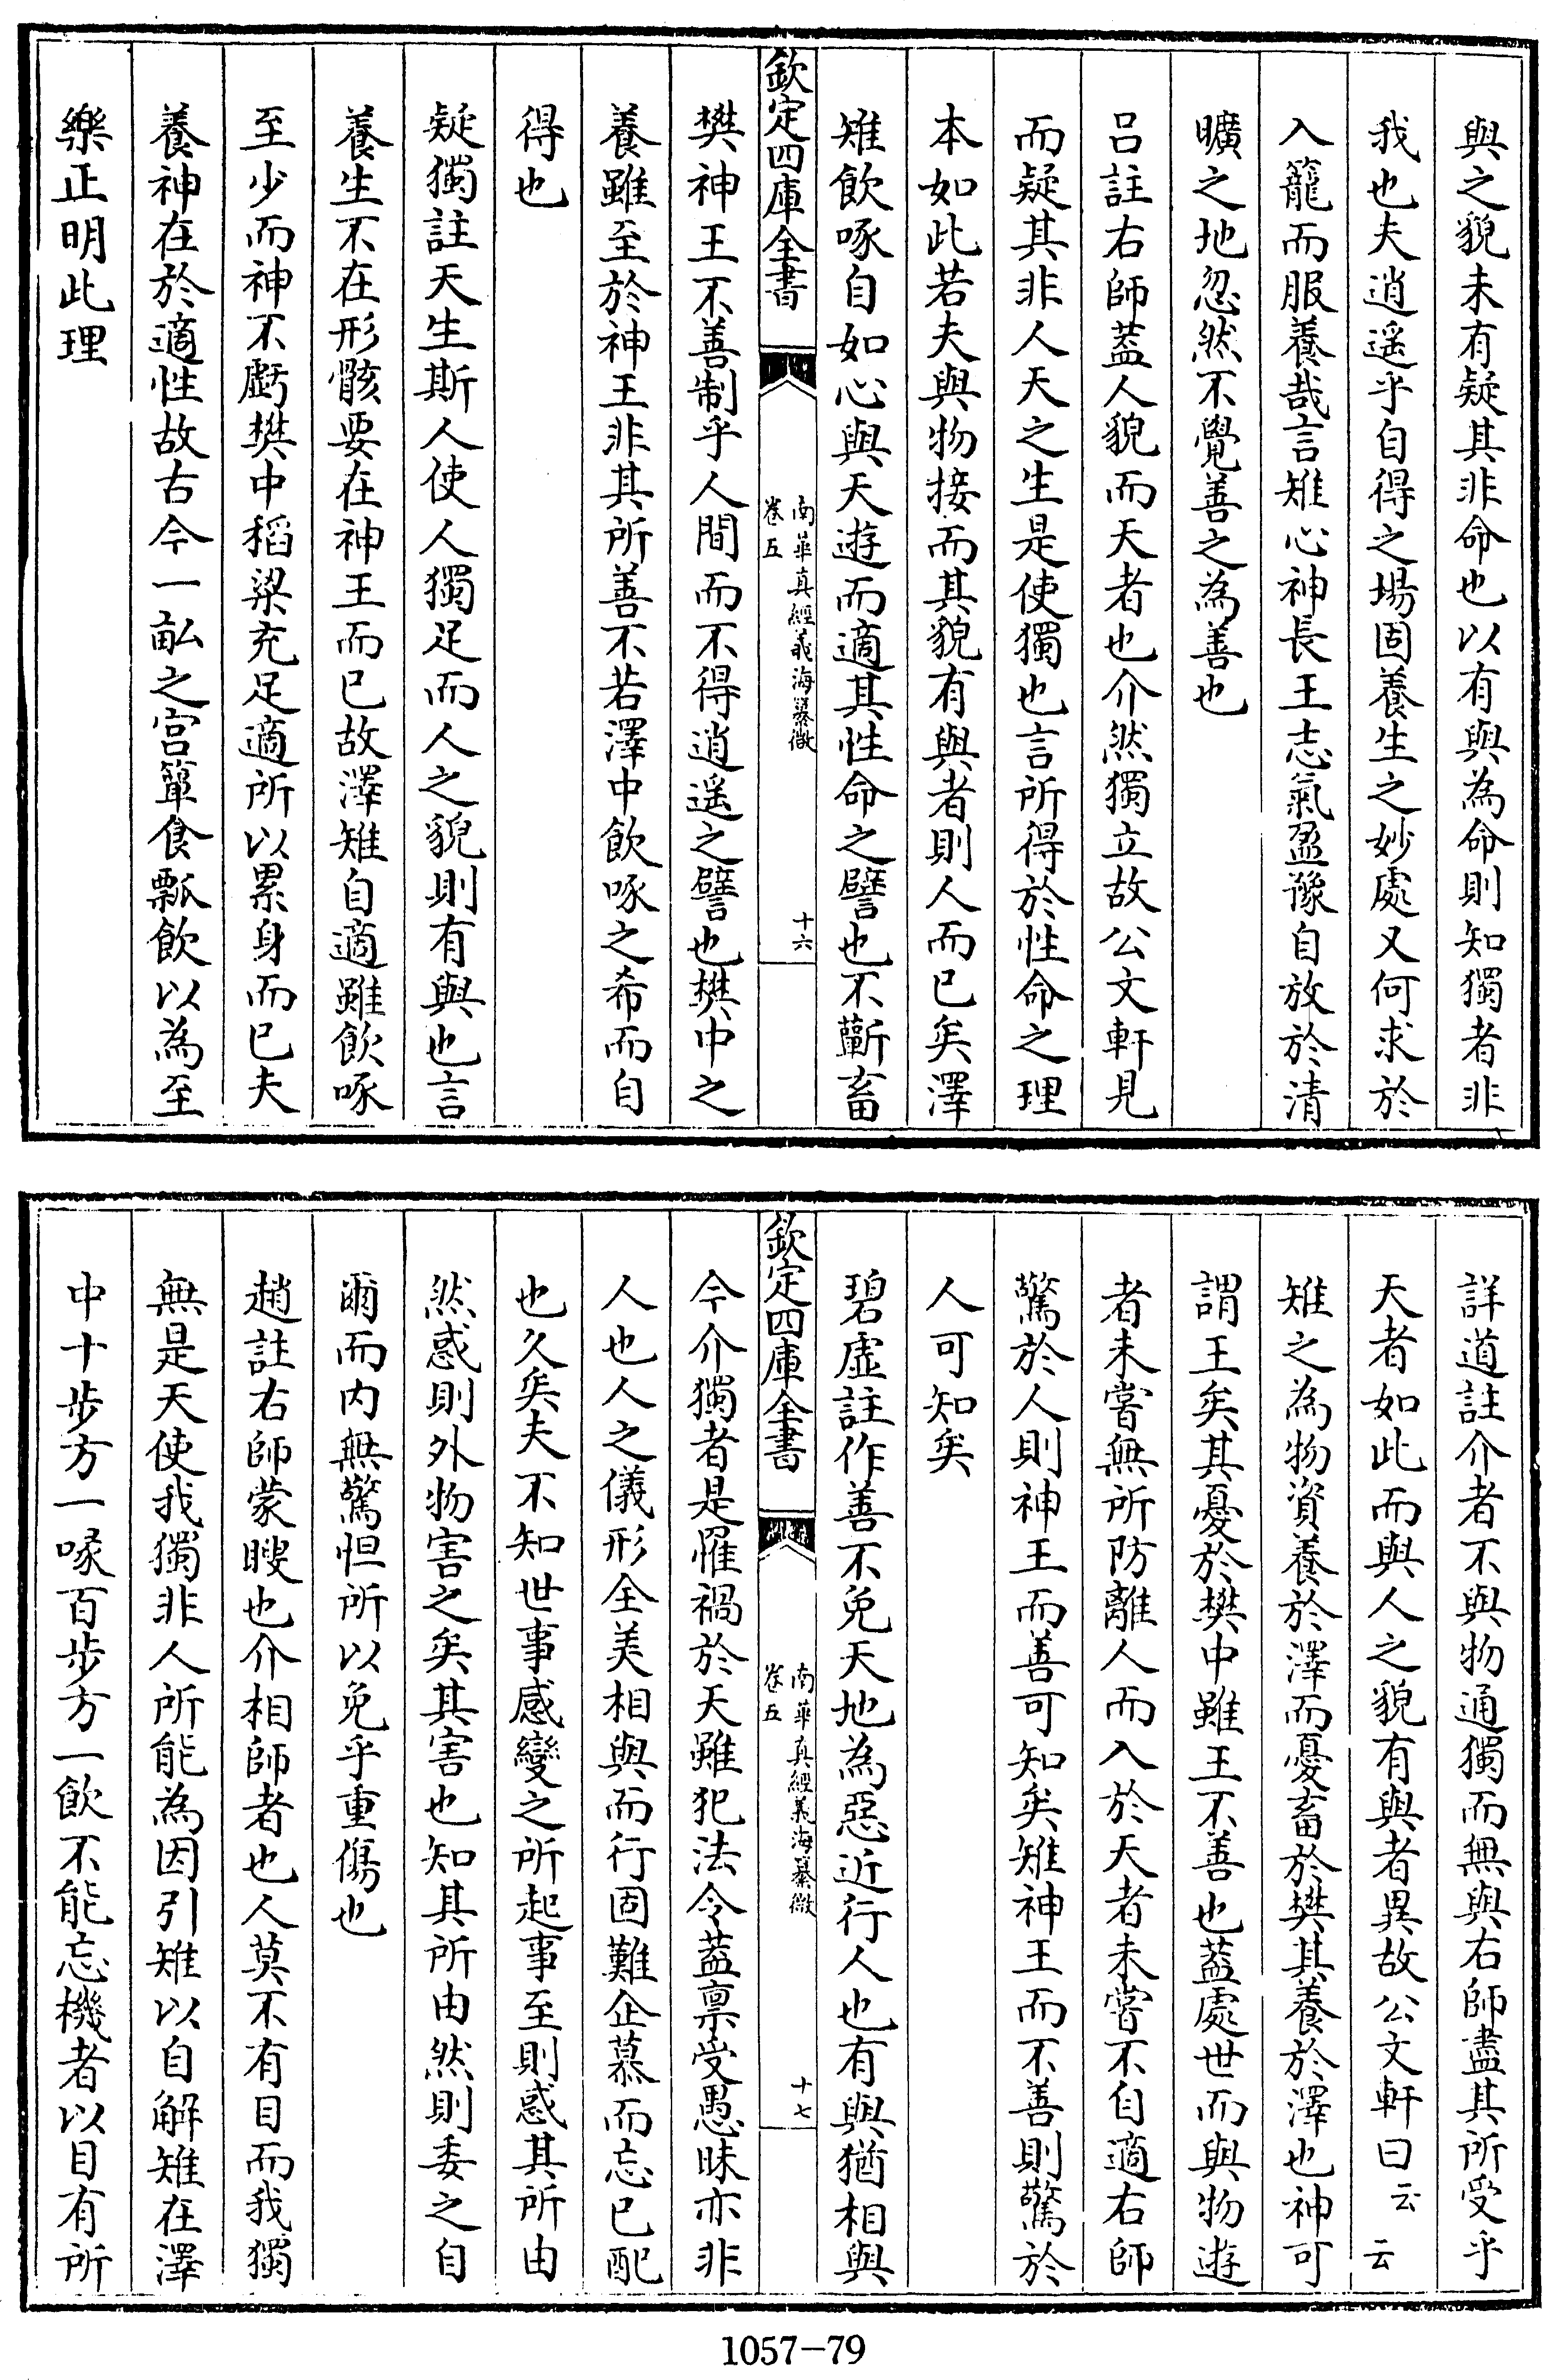 與之貌未有疑其非命也以有與為命則知獨者非
我也夫逍遥乎自得之場固養生之妙處又何求於
入籠而服養哉言雉心神長王志氣盈豫自放於清
曠之地忽然不覺善之為善也
吕註右師蓋人貌而天者也介然獨立故公文軒見
而疑其非人天之生是使獨也言所得於性命之理
本如此若夫與物接而其貌有與者則人而已矣澤
雉飲啄自如心與天遊而適其性命之譬也不蘄畜
欽定四庫全書
南華真經義海纂微
卷五
十六
樊神王不善制乎人間而不得逍遥之譬也樊中之
養雖至於神王非其所善不若澤中飲啄之希而自
得也
疑獨註天生斯人使人獨足而人之貌則有與也言
養生不在形骸要在神王而已故澤雉自適雖飲啄
至少而神不虧樊中稻粱充足適所以累身而已夫
養神在於適性故古今一畝之宫簞食瓢飲以為至
樂正明此理
詳道註介者不與物通獨而無與右師盡其所受乎
天者如此而與人之貌有與者異故公文軒曰云云
雉之為物資養於澤而憂畜於樊其養於澤也神可
謂王矣其憂於樊中雖王不善也蓋處世而與物遊
者未嘗無所防離人而入於天者未嘗不自適右師
驚於人則神王而善可知矣雉神王而不善則驚於
人可知矣
碧虛註作善不免天地為惡近行人也有與猶相與
欽定四庫全書
南華真經義海纂微
卷五
十七
今介獨者是罹禍於天雖犯法令蓋禀受愚昧亦非
人也人之儀形全美相與而行固難企慕而忘已配
也久矣夫不知世事感變之所起事至則惑其所由
然惑則外物害之矣其害也知其所由然則委之自
爾而内無驚怛所以免乎重傷也
趙註右師蒙瞍也介相師者也人莫不有目而我獨
無是天使我獨非人所能為因引雉以自解雉在澤
中十步方一啄百步方一飲不能忘機者以目有所
1057-79